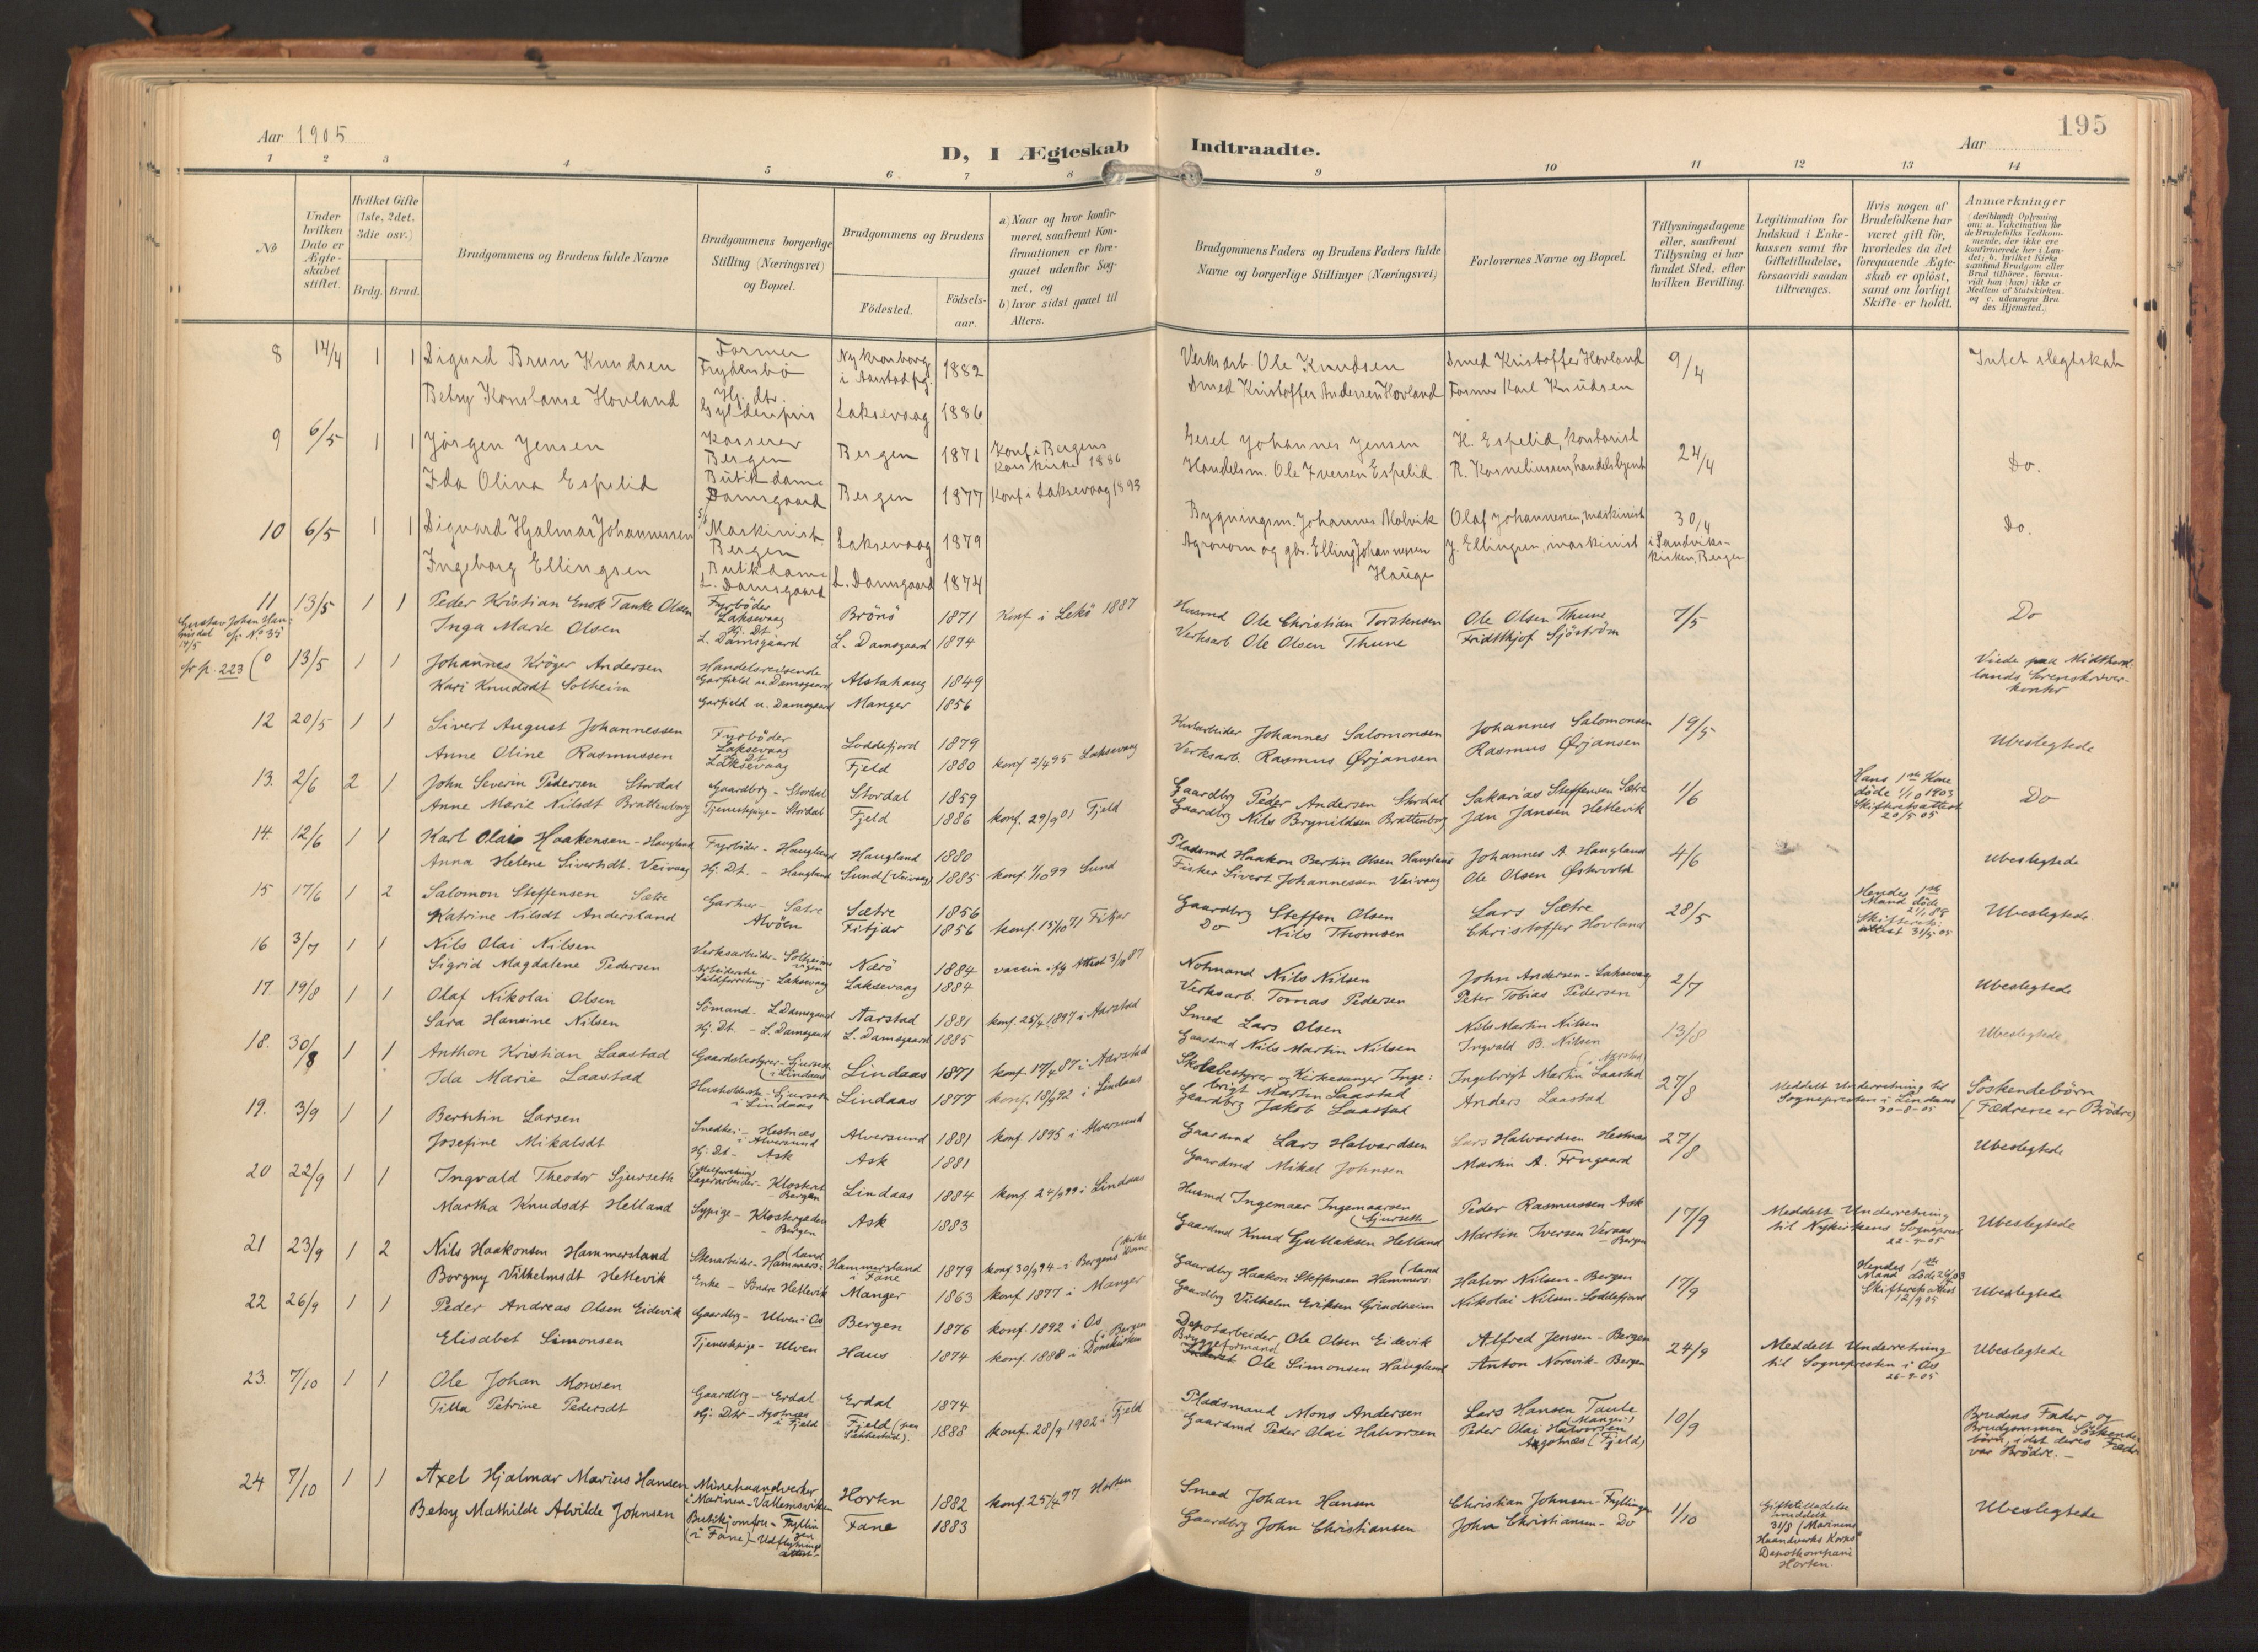 195
Aar 1905
D, I Ægteskab Indtraadte.
Aar
1 2 3 4 5 6 7 8 9 10 11 12 13 14
No
Under hvilken Dato er Ægteskabet stiftet.
Hvilket Gifte (1ste, 2det, 3die osv.)
Brdg. Brud.
Brudgommens og Brudens fulde Navne
Brudgommens borgerlige Stilling (Næringsvei) og Bopæl.
Brudgommens og Brudens
Födested.
Födselsaar.
a) Naar og hvor konfirmeret, saafremt Konfirmationen er foregaaet udenfor Sognet, og
b) hvor sidst gaaet til Alters.
Brudgommens Faders og Brudens Faders fulde Navne og borgerlige Stillinger (Næringsvei)
Forlovernes Navne og Bopæl.
Tillysningsdagene eller, saafremt Tillysning ei har fundet Sted, efter hvilken Bevilling.
Legitimation for Indskud i Enkekassen samt for Giftetilladelse, forsaavidt saadan tiltrænges.
Hvis nogen af Brudefolkene har været gift för, hvorledes da det foregaaende Ægteskab er oplöst, samt om lovligt Skifte er holdt.
Anmærkninger (deriblandt Oplysning om: a. Vakcination for de Brudefolks Vedkommende, der ikke ere konfirmerede her i Landet; b. hvilket Kirkesamfund Brudgom eller Brud tilhörer, forsaavidt han (hun) ikke er Medlem af Statskirken, og c. udensogns Brudes Hjemsted.)
8 14/4 1 1 Sigurd Brun Knudsen Former Frydenbö Ny kronborg i Aarstad pg. 1882 Verksarb. Ole Knudsen Smed Kristoffer Hovland 9/4 Intet slegtskab
Betsy Konstanse Hovland Hj. dtr. Gyldenpris Laksevaag 1886 Smed Kristoffer Andersen Hovland Former Karl Knudsen
9 6/5 1 1 Jörgen Jensen Kasserer Bergen Bergen 1871 Konf. i Bergens Korskirke 1886 Gesel Johannes Jensen H. Espelid, kontorist 24/4 Do.
Ida Olina Espelid Butikdame Damsgaard Bergen 1877 Konf. i Laksevaag 1893 Handelsm. Ole Iversen Espelid R. Korneliussen, handelsbetjent
10 6/5 1 1 Sigvard Hjalmar Johannessen Maskinist. Bergen Laksevaag 1879 Bygningsm. Johannes Malvik Olaf Johannessen, maskinist 30/4 i Sandvikskirken, Bergen Do.
Ingeborg Ellingsen Butikdame L. Damsgaard L. Damsgaard 1874 Agronom og gbr. Elling Johannessen Hauge J. Ellingsen, maskinist
11 13/5 1 1 Peder Kristian Ensk Tanke Olsen Fyrböder Laksevaag Brönö 1871 Konf. i Lekö 1887 Husmd Ole Christian Torstensen Ole Olsen Thune 7/5 Do
Inga Marie Olsen Hj. Dt L. Damsgaard L. Damsgaard 1874 Verksarb. Ole Olsen Thune Fridtthjof Sjöström
Gustav Johan 14/5 cfr No 35
cfr p. 223 (0 13/5 1 1 Johannes Kröger Andersen Handelsreisende Garfield u. Damsgaard Alstahaug 1849 Viede paa Midthordlands Sorenskriverkontor
Kari Knudsdt Solheim Garfield u. Damsgaard Manger 1856
12 20/5 1 1 Sivert August Johannessen Fyrböder Laksevaag Loddefjord 1879 Johannes Salomonsen Johannes Salomonsen 19/5 Ubeslegtede
Anne Oline Rasmussen Hj. Dt Laksevaag Fjeld 1880 konf 2/4 95 Laksevaag Verksarb. Rasmus Ørjansen Rasmus Ørjansen
13. 2/6 2 1 John Severin Pedersen Stordal Gaardbrg - Stordal Stordal 1859 Gaardbrg Peder Andersen Stordal Sakarias Steffensen Sætre 1/6 Hans 1ste Kone döde 1/10 1903 Skifteretsattest 20/5 05 Do
Anne Marie Nilsdt Brattenborg Tjenestepige - Stordal Fjeld 1886 konf. 29/9 01 Fjeld Gaardbrg Nils Brynildsen Brattenborg Jan Jansen Hetlevik
14. 12/6 1 1 Karl Olai Haakensen - Haugland Fyrböder - Haugland Haugland 1880 Pladsmd Haakon Bertin Olsen Haugland Johannes A. Haugland 4/6 Ubeslegtede
Anna Helene Sivertsdt. Veivaag Hj. Dt. - Haugland Sund (Veivaag) 1885 konf. 1/10 99 Sund Fisker Sivert Johannessen Veivaag Ole Olsen Østervold
15 17/6 1 2 Salomon Steffensen Sætre Gartner - Sætre Sætre 1856 Gaardbrg Steffen Olsen Lars Sætre 28/5 Hendes 1ste Mand döde Skifteretsattest 31/5 05 Ubeslegtede.
Katrine Nilsdt Andersland Alvöen Fitjar 1856 konf. 15/10 71 Fitjar Do Nils Thomsen Christoffer Hovland
16 3/7 1 1 Nils Olai Nilsen Verksarbeider - Solheimsvigen Nærö 1884 vaccin. ifg Attest 3/8 87 Notmand Nils Nilsen John Andersen - Laksevaag 2/7 Ubeslegtede
Sigrid Magdalene Pedersen Arbeiderske Sildforretning - Laksevaag Laksevaag 1884 Verksarb. Tomas Pedersen Peter Tobias Pedersen
17. 19/8 1 1 Olaf Nikolai Olsen Sömand. L. Damsgaard Aarstad 1881 konf. 25/4 1897 i Aarstad Smed Lars Olsen Nils Martin Nilsen 13/8 Ubeslegtede
Sara Hansine Nilsen Hj. Dt - L. Damsgaard L. Damsgaard 1885 Gaardmd Nils Martin Nilsen Ingvald B. Nilsen
18. 30/8 1 1 Anthon Kristian Laastad Gaardsbestyrer - Gjurseth (i Lindaas Lindaas 1871 konf. 17/4 87 i Aarstad Skolebestyrer og Kirkesanger Ingebrigt Martin Laastad Ingebrigt Martin Laastad (i Aarstad 27/8 Meddelt Underretning til Sognepresten i Lindaas 30-8-05 Söskendebörn (Fædrene er Brödre)
Ida Marie Laastad Husholderske - Gjurseth i Lindaas Lindaas 1877 konf. 18/9 92 i Lindaas Gaardbrg Jakob Laastad Anders Laastad
19. 3/9 1 1 Berntin Larsen Snedker - Hestnæs i Alversund Alversund 1881 konf. 1895 i Alversund Gaardmd Lars Halvardsen Lars Halvardsen Hestnæs 27/8 Ubeslegtede
Josefine Mikalsdt Hj. Dt - Ask Ask 1881 Gaardmd Mikal Johnsen Martin A. Frugaard
20 22/9 1 1 Ingvald Theodor Gjurseth Lagerarbeider - Klosteret - Bergen Lindaas 1884 konf. 24/9 99 i Lindaas Husmd Ingemaar Ingemaarsen (Gjurseth Peder Rasmussen Ask 17/9 Meddelt Underretning til Nykirkens Sogneprest 22-9-05 Ubeslegtede
Martha Knudsdt Helland Sypige - Klostergaden - Bergen Ask 1883 Gaardmd Knud Gullaksen Helland Martin Iversen Vernaas - Bergen
21 23/9 1 2 Nils Haakonsen Hammersland Stenarbeider - Hammers: (land Hammersland i Fane 1879 konf 30/9 94 - i Bergens Dom- (kirke Gaardbrg Haakon Steffensen Hammers: (land Halvor Nilsen - Bergen 17/9 Hendes 1ste Mand döde Skifteretsattest 12/9 05 Ubeslegtede
Borgny Vilhelmsdt Hetlevik Enke - Söndre Hetlevik Manger 1863 konf 1877 i Manger Gaardbrg Vilhelm Eriksen Grindheim Nikolai Nilsen - Loddefjord
22 26/9 1 1 Peder Andreas Olsen Eidevik Gaardbrg - Ulven i Os Bergen 1876 konf. 1892 i Os Depotarbeider Ole Olsen Eidevik Alfred Jensen - Bergen 24/9 Meddelt Underretning til Sognepresten i Os 26-9-05 Ubeslegtede
Elisabet Simonsen Tjenestepige - Ulven Haus 1874 konf. 1888 i Domkirken (i Bergen Bryggeformand Ole Simonsen Haugland Anton Norevik - Bergen
23. 7/10 1 1 Ole Johan Monsen Gaardbrg - Erdal Erdal 1874 Pladsmand Mons Andersen Lars Hansen Taule (Manger) 10/9 Brudens Fader og Brudgommen Söskendebörn, idet deres Fædre var Brödre. -
Tilla Petrine Pedersdt Hj. Dtr - Agotnæs i Fjeld Fjeld 1888 konf. 28/9 1902 i Fjeld Gaardmd Peder Olai Halvorsen Peder Olai Halvorsen Agotnæs (Fjeld)
24 7/10 1 1 Axel Hjalmar Marius Hansen Minehaandverker i Marinen - Vatlemsviken Horten 1882 konf. 25/4 97 Horten Smed Johan Hansen Christian Johnsen - Fyllingen 1/10 Giftetilladelse meddelt 31/8 (Marinens Haandverks Korps Depotkompani Horten. Ubeslegtede
Betsy Mathilde Alvilde Johnsen Butikjomfru - Fyllingen (i Fane) - Udflytningsattest - Fane 1883 Gaardbrg John Christiansen John Christiansen - Do